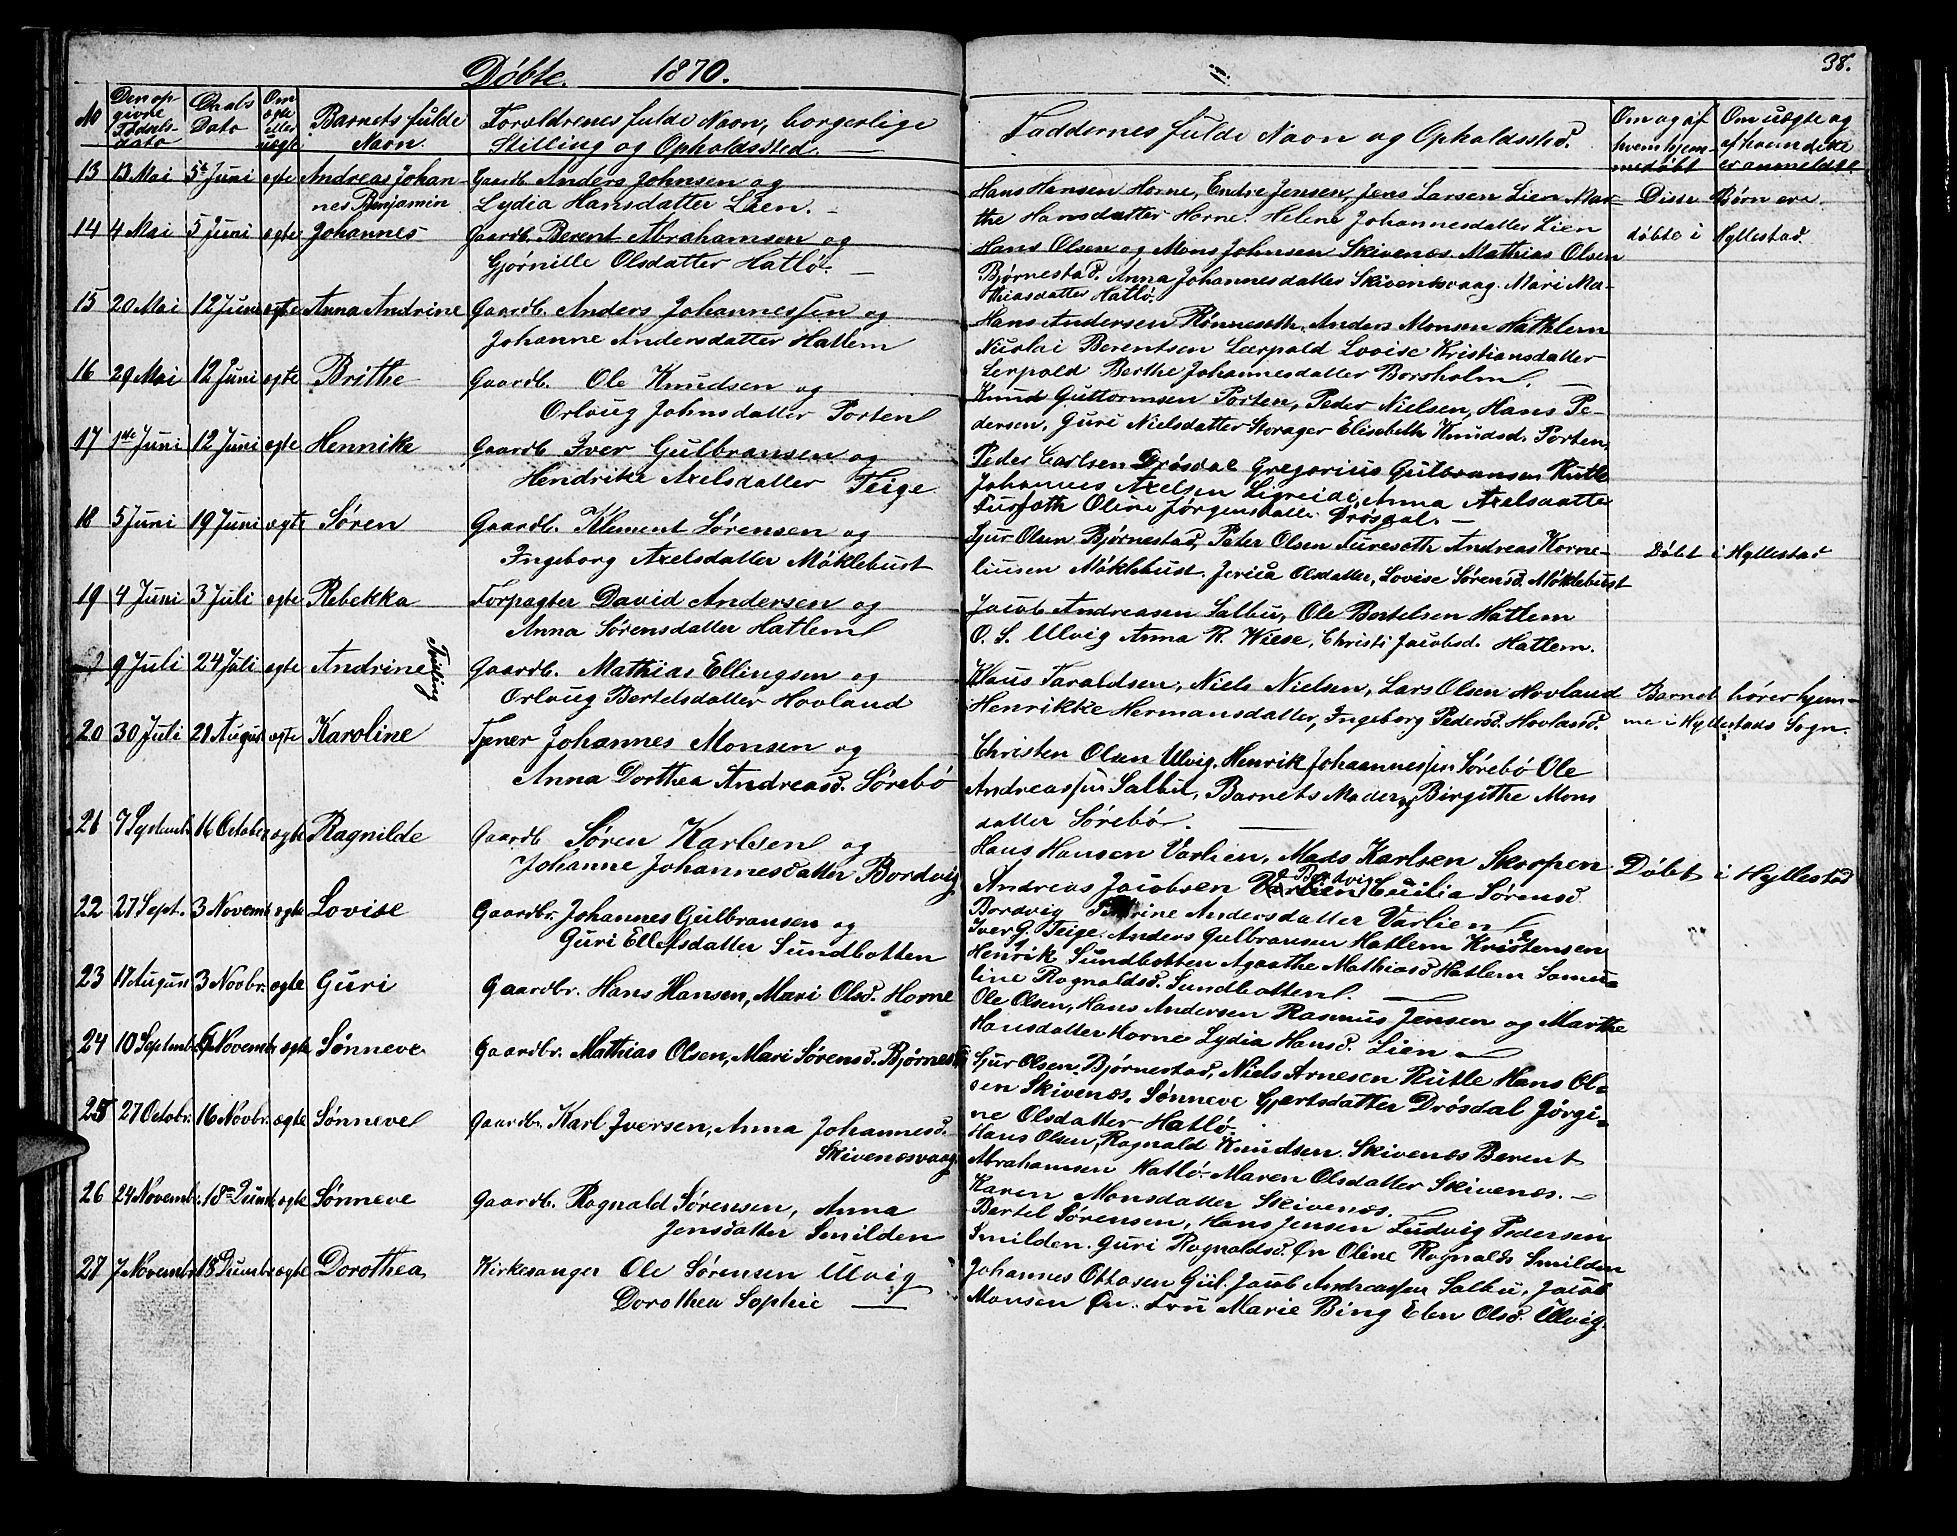 Døbte. 1870.
38.
No
Den op-
givne
Fødsels-
dato
Daabs
Dato
Om
ægte
eller
uægte
Barnets fulde
Navn.
Forældrenes fulde Navn, borgerlige
Stilling og Opholdssted.
Faddernes fulde Navn og Opholdssted.
Om og af
hvem hjem-
medøbt
Om uægte og
af hvem dike
er anmeldte
13 13 Mai 5te Juni ægte Andreas Johan-
nes Benjamin
Gaardb. Anders Johnsen og
Lydia Hansdatter Lien.
Hans Hansen Horne, Endre Jensen, Jens Larsen Lien Mar-
the Hansdatter Horne. Helene Johannesdatter Lien
Disse Børn ere
døbte i Hyllestad
14 4 Mai 5 Juni ægte Johannes
Gaardb. Berent Abrahamsen og
Gjørnille Olsdatter Hatlø.
Hans Olsen og Mons Johnsen Skivenes Mathias Olsen
Bjørnestad. Anna Johannesdatter Skivenesvaag. Mari Ma-
thiasdatter Hatlø.
15 20 Mai 12 Juni ægte Anna Andrine
Gaardb. Anders Johannessen og
Johanne Andersdatter Hatlem
Hans Andersen Rønneseth. Anders Monsen Hatlem
Nicolai Berentsen Lærpold Lovise Kristiansdatter
Lerpold Berthe Johannesdatter Borsholm.
16 29 Mai 12 Juni ægte Brithe
Gaardb. Ole Knudsen og
Orloug Johnsdatter Porten
Knud Guttormsen Porten, Peder Nielsen, Hans Pe-
dersen, Guri Nielsdatter Storager Elisebeth Knudsd. Porten,
17 1ste Juni 12 Juni ægte Hennike
Gaardb. Iver Gulbransen og
Hendrike Axelsdatter Teige
Peder Carlsen Drøsdal Gregorius Gulbransen Rutle
Johannes Axelsen Ligreide, Anna Axelsdatter
Oline Jørgensdatter Drøsdal.
18 5 Juni 19 Juni ægte Søren
Gaardb. Klement Sørensen og
Ingeborg Axelsdatter Møklebust
Sjur Olsen Bjørnestad, Peter Olsen Tureseth Andreas Korne-
liusen Møklebust. Olsdatter, Lovise Sørensd. Møklebust
Døbt i Hyllestad
19 4 Juni 3 Juli ægte Rebekka
Forpagter David Andersen og
Anna Sørensdatter Hatlem
Jacob Andreasen Salbu, Ole Bertelsen Hatlem
O. S. Ulvig Anna R. Wiese, Christi Jacobsd. Hatlem.
9 Juli 24 Juli ægte Andrine
Tvilling
Gaardb. Mathias Ellingsen og
Orloug Bertelsdatter Hovland
Klaus Taraldsen, Niels Nielsen, Lars Olsen Hovland
Henrikke Hermansdatter, Ingeborg Pedersd. Hovland.
Barnet hører hjem-
me i Hyllestads Sogn.
20 30 Juli 28 August ægte Karoline
Tjener Johannes Monsen og
Anna Dorthea Andreasd. Sørebø
Christen Olsen Ulvig. Henrik Johannessen Sørebø Ole
Andreassen Salbu, Barnets Moder og Birgithe Mons
datter Sørebø.
21 7 Septemb. 16 October ægte Ragnilde
Gaardb. Søren Karlsen og
Johanne Johannesdatter Bordvig
Hans Hansen Varlien, Mads Karlsen Skorpen
Andreas Jacobsen Bordvig Cecilia Sørensd.
Bordvig Andersdatter Varlien
Døbt i Hyllestad
22 27 Sept. 3 Novemb ægte Lovise
Gaardbr. Johannes Gulbransen og
Guri Ellefsdatter Sundbotten
Iver G. Teige. Anders Gulbransen Hatlem Kristensen
Henrik Sundbotten Agaathe Mathiasd Hatlem Samu-
line Ragnaldsd. Sundbotten.
23 17 August 3 Novbr. ægte Guri
Gaardbr. Hans Hansen, Mari Olsd. Horne
Ole Olsen, Hans Andersen Rasmus Jensen og Marthe
Hansdatter Horne Lydia Hansd. Lien
24 10 Septmb. 6 Novemb ægte Sønneve
Gaardbr. Mathias Olsen, Mari Sørensd. Bjørnes
Sjur Olsen, Bjørnestad, Niels Arnesen Rutle Hans Ol-
sen Skivenes. Sønneve Gjertsdatter Drøsdal Jørgi-
ne Olsdatter Hatlø.
25 27 Octobr. 16 Novbr. ægte Sønneve
Gaardbr. Karl Iversen, Anna Johannesd.
Skivenesvaag
Hans Olsen, Ragnald Knudsen. Skivenes Berent
Abrahamsen Hatlø. Maren Olsdatter Skivenes.
Karen Monsdatter Skivenes.
26 24 Novemb. 18de Decemb. ægte Sønneve
Gaardb. Ragnald Sørensen, Anna
Jensdatter Smilden
Bertel Sørensen, Hans Jensen Ludvig Pedersen
Smilden. Guri Ragnaldsd. Øn Oline Ragnalds Smilden
27 7 Novembr 18 Decembr ægte Dorothea
Kirkesanger Ole Sørensen Ulvig
Dorothea Sophie
Johannes Ottosen Gül. Jacob Andreassen Salbu, Jacob
Monsen Øn. Fru Marie Bing Elen Olsd. Ulvig.